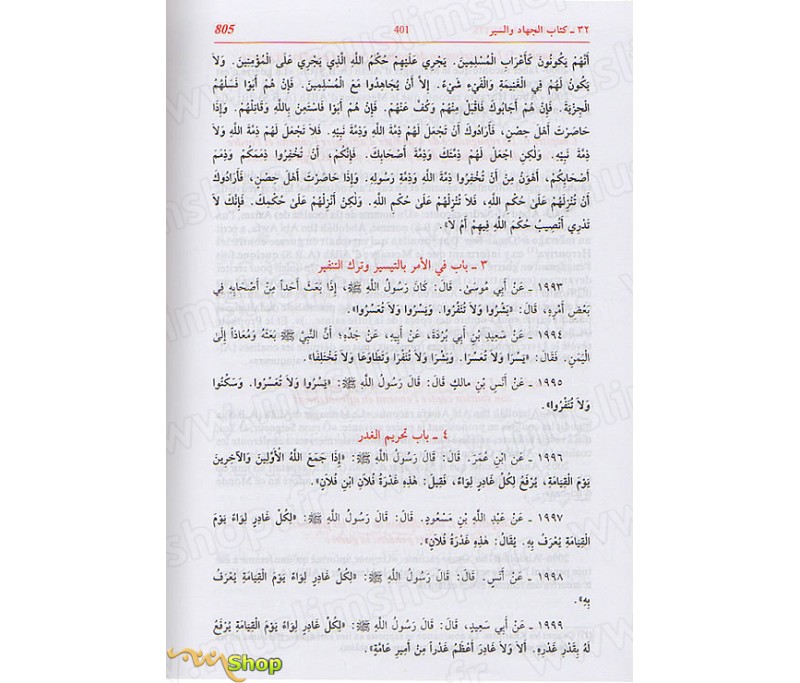 ٣٢ ـ كتاب الجهاد والسير 401 805
أَنَّهُمْ يَكُونُونَ كَأَعْرَابِ الْمُسْلِمِينَ. يَجْرِي عَلَيْهِمْ حُكْمُ اللَّهِ الَّذِي يَجْرِي عَلَى الْمُؤْمِنِينَ. وَلَا
يَكُونُ لَهُمْ فِي الْغَنِيمَةِ وَالْفَيْءِ شَيْءٌ. إِلَّا أَنْ يُجَاهِدُوا مَعَ الْمُسْلِمِينَ. فَإِنْ هُمْ أَبَوْا فَسَلْهُمُ
الْجِزْيَةَ. فَإِنْ هُمْ أَجَابُوكَ فَاقْبَلْ مِنْهُمْ وَكُفَّ عَنْهُمْ. فَإِنْ هُمْ أَبَوْا فَاسْتَعِنْ بِاللَّهِ وَقَاتِلْهُمْ. وَإِذَا
حَاصَرْتَ أَهْلَ حِصْنٍ، فَأَرَادُوكَ أَنْ تَجْعَلَ لَهُمْ ذِمَّةَ اللَّهِ وَذِمَّةَ نَبِيِّهِ. فَلَا تَجْعَلْ لَهُمْ ذِمَّةَ اللَّهِ وَلَا
ذِمَّةَ نَبِيِّهِ. وَلَكِنِ اجْعَلْ لَهُمْ ذِمَّتَكَ وَذِمَّةَ أَصْحَابِكَ. فَإِنَّكُمْ، أَنْ تُخْفِرُوا ذِمَمَكُمْ وَذِمَمَ
أَصْحَابِكُمْ، أَهْوَنُ مِنْ أَنْ تُخْفِرُوا ذِمَّةَ اللَّهِ وَذِمَّةَ رَسُولِهِ. وَإِذَا حَاصَرْتَ أَهْلَ حِصْنٍ، فَأَرَادُوكَ
أَنْ تُنْزِلَهُمْ عَلَىٰ حُكْمِ اللَّهِ، فَلَا تُنْزِلْهُمْ عَلَىٰ حُكْمِ اللَّهِ. وَلَكِنْ أَنْزِلْهُمْ عَلَىٰ حُكْمِكَ. فَإِنَّكَ لَا
تَدْرِي أَتُصِيبُ حُكْمَ اللَّهِ فِيهِمْ أَمْ لَا».
٣ ـ باب في الأمر بالتيسير وترك التنفير
١٩٩٣ ـ عَنْ أَبِي مُوسَىٰ. قَالَ: كَانَ رَسُولُ اللَّهِ ﷺ، إِذَا بَعَثَ أَحَداً مِنْ أَصْحَابِهِ فِي
بَعْضِ أَمْرِهِ، قَالَ: «بَشِّرُوا وَلَا تُنَفِّرُوا. وَيَسِّرُوا وَلَا تُعَسِّرُوا».
١٩٩٤ ـ عَنْ سَعِيدِ بْنِ أَبِي بُرْدَةَ، عَنْ أَبِيهِ، عَنْ جَدِّهِ؛ أَنَّ النَّبِيَّ ﷺ بَعَثَهُ وَمُعَاذاً إِلَى
الْيَمَنِ. فَقَالَ: «يَسِّرَا وَلَا تُعَسِّرَا. وَبَشِّرَا وَلَا تُنَفِّرَا وَتَطَاوَعَا وَلَا تَخْتَلِفَا».
١٩٩٥ ـ عَنْ أَنَسِ بْنِ مَالِكٍ قَالَ: قَالَ رَسُولُ اللَّهِ ﷺ: «يَسِّرُوا وَلَا تُعَسِّرُوا. وَسَكِّنُوا
وَلَا تُنَفِّرُوا».
٤ ـ باب تحريم الغدر
١٩٩٦ ـ عَنِ ابْنِ عُمَرَ. قَالَ: قَالَ رَسُولُ اللَّهِ ﷺ: «إِذَا جَمَعَ اللَّهُ الْأَوَّلِينَ وَالْآخِرِينَ
يَوْمَ الْقِيَامَةِ، يُرْفَعُ لِكُلِّ غَادِرٍ لِوَاءٌ، فَقِيلَ: هَذِهِ غَدْرَةُ فُلَانِ ابْنِ فُلَانٍ».
١٩٩٧ ـ عَنْ عَبْدِ اللَّهِ بْنِ مَسْعُودٍ. قَالَ: قَالَ رَسُولُ اللَّهِ ﷺ: «لِكُلِّ غَادِرٍ لِوَاءٌ يَوْمَ
الْقِيَامَةِ يُعْرَفُ بِهِ. يُقَالُ: هَذِهِ غَدْرَةُ فُلَانٍ».
١٩٩٨ ـ عَنْ أَنَسٍ. قَالَ: قَالَ رَسُولُ اللَّهِ ﷺ: «لِكُلِّ غَادِرٍ لِوَاءٌ يَوْمَ الْقِيَامَةِ يُعْرَفُ
بِهِ».
١٩٩٩ ـ عَنْ أَبِي سَعِيدٍ، قَالَ: قَالَ رَسُولُ اللَّهِ ﷺ: «لِكُلِّ غَادِرٍ لِوَاءٌ يَوْمَ الْقِيَامَةِ يُرْفَعُ
لَهُ بِقَدْرِ غَدْرِهِ. أَلَا وَلَا غَادِرَ أَعْظَمُ غَدْراً مِنْ أَمِيرِ عَامَّةٍ».
Shop